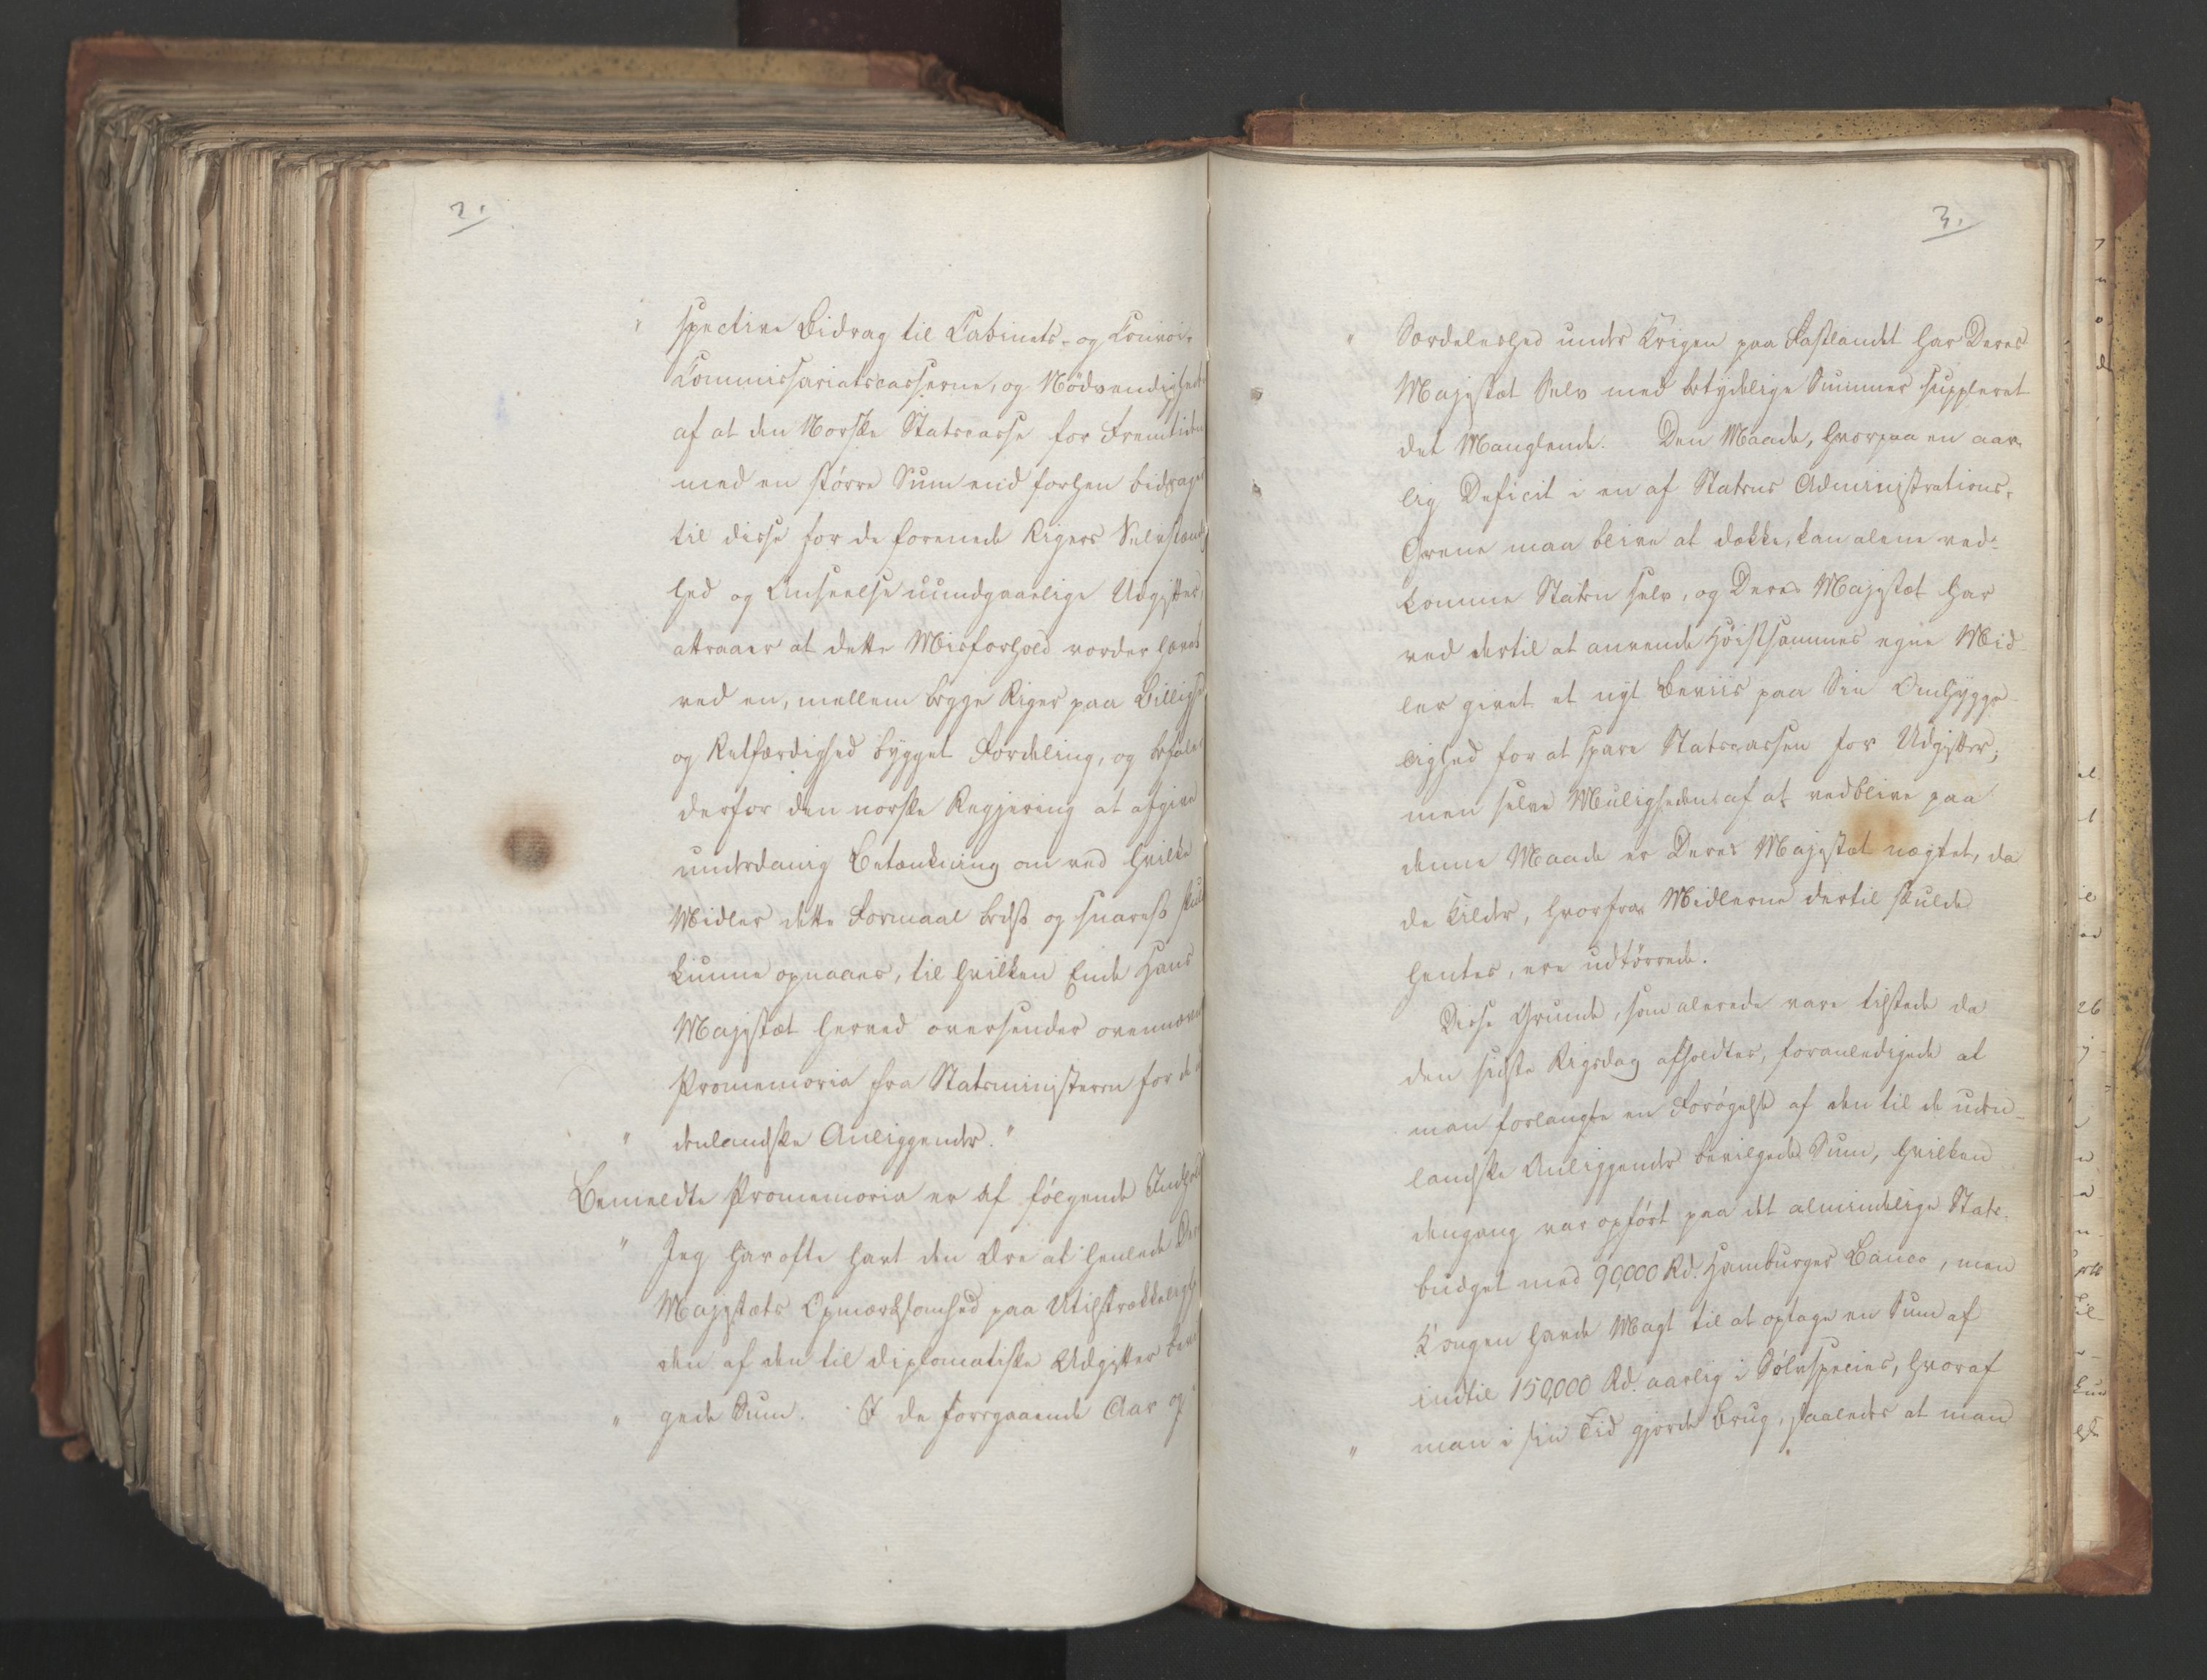 2.
" spective Bidrag til Cabinets- og Convoi-
Commissariatscasserne, og Nödvendighed
af at den Norske Statscasse for Fremtiden
med en större Sum end forhen bidrager
til disse for de forenede Rigers Selvstænd
hed og Anseelse uundgaaelige Udgifter,
attraaer at dette Misforhold vorder hævet
ved en, mellem begge Riger paa Billighed
og Retfærdighed bygget Fordeling, og befaler
derfor den norske Regjering at afgive
underdanig Betænkning om ved hvilke
Midler dette Formaal bedst og snarest skulde
kunne opnaaes, til hvilken Ende Hans
Majestæt herved oversender ovennævnte
Promemoria fra Statsministeren for de
" denlandske Anliggender."
Bemeldte Promemoria er af fölgende Indhold
" Jeg har ofte havt den Ære at henlede De
Majestæts Opmærksomhed paa Utilstrækkelighe
den af den til diplomatiske Udgifter bevil
" gede Sum. I de foregaaende Aar og
3.
" Særdeleshed under Krigen paa Fastlandet har Deres
Majestæt Selv med betydelige Summer suppleret
det Manglende. Den Maade, hvorpaa en aar-
lig Deficit i en af Statens Administrations-
Grene maa blive at dække, kan alene ved-
komme Staten selv, og Deres Majestæt har
ved dertil at anvende Höistsammes egne Mid-
ler givet et nyt Beviis paa Sin Omhygge-
lighed for at spare Statscassen for Udgifter;
men selve Muligheden af at vedblive paa
denne Maade er Deres Majestæt nægtet, da
de Kilder, hvorfra Midlerne dertil skulde
hentes, ere udtörrede.
Disse Grunde, som alerede vare tilstede da
den sidste Rigsdag afholdtes, foranledigede at
man forlangte en Forögelse af den til de uden-
landske Anliggender bevilgede Sum, hvilken
dengang var opfört paa det almindelige Stats-
budget med 90,000 Rd. Hamburger Banco, men
Kongen havde Magt til at optage en Sum af
indtil 150,000 Rd. aarlig i Sölvspecies, hvoraf
" man i sin Tid gjorde Brug, saaledes at man